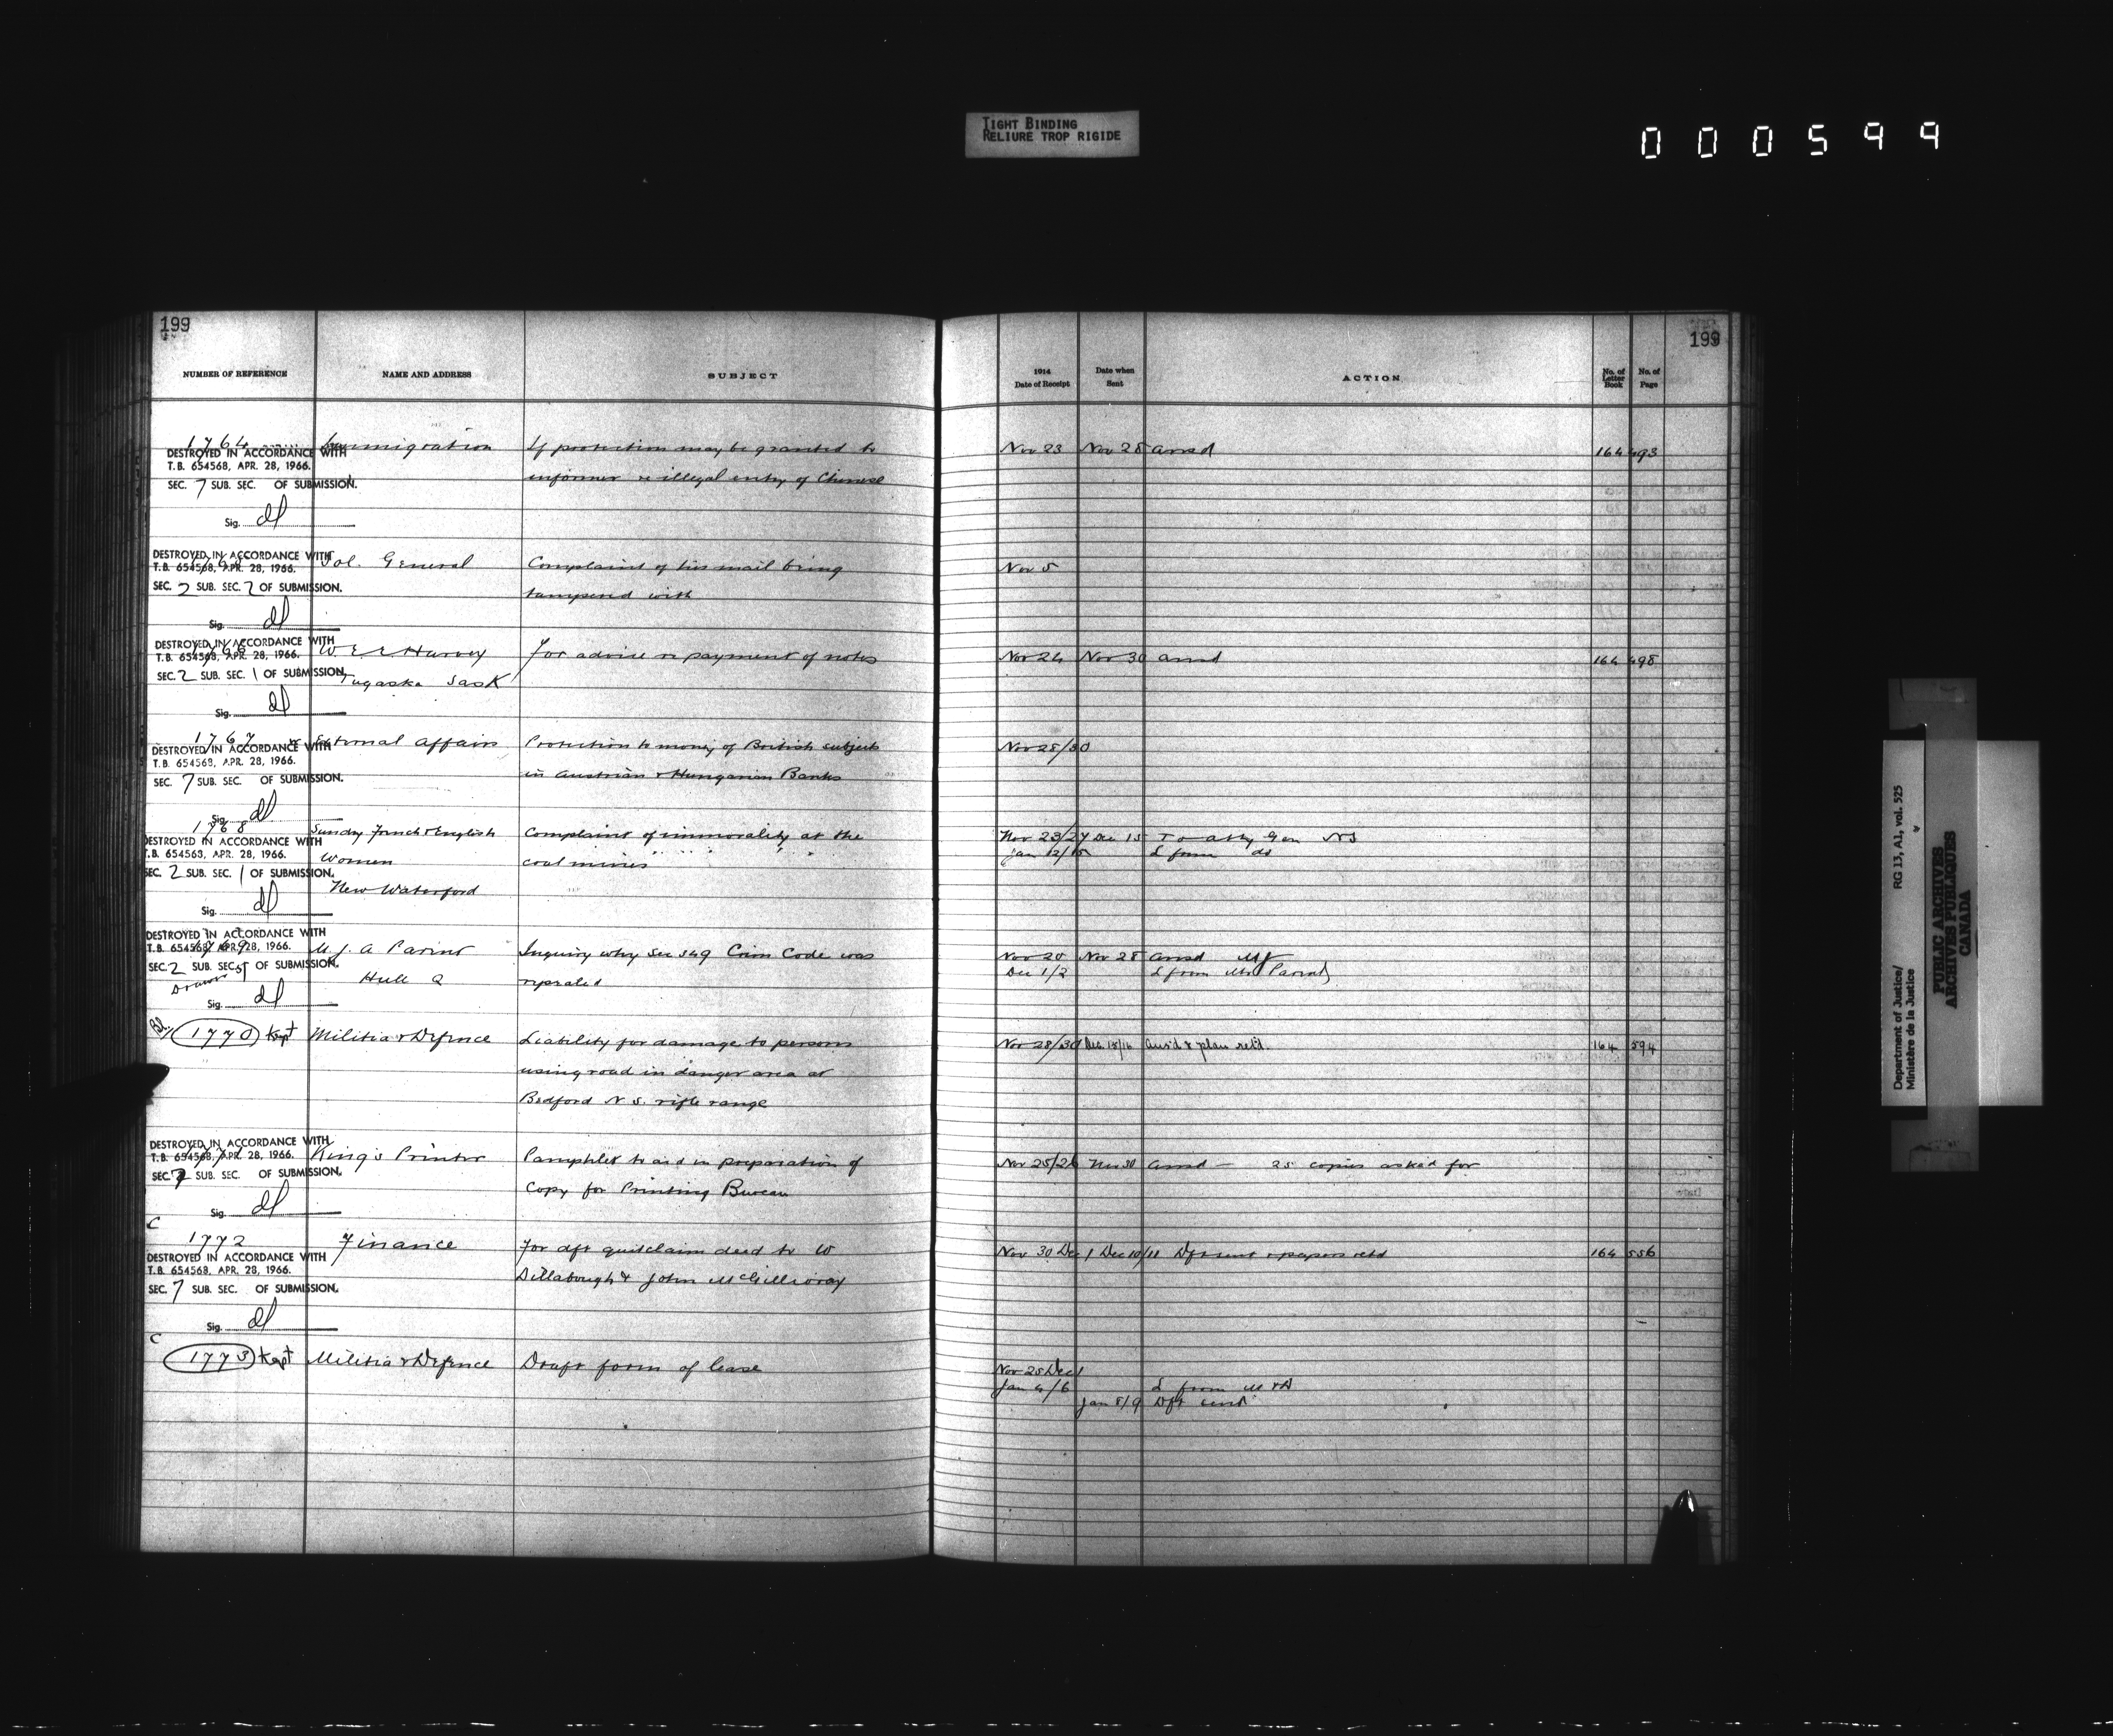 TIGHT BINDING
RELIURE TROP RIGIDE
000599
199
NUMBER OF REFERENCE NAME AND ADDRESS SUBJECT
1764 Immigration If protection may be granted to
informer re illegal entry of Chinese
DESTROYED IN ACCORDANCE WITH
T.B. 654568, APR. 28, 1966.
SEC. 7 SUB. SEC. OF SUBMISSION.
Sig. dl
DESTROYED IN ACCORDANCE WITH
T.B. 654568, APR. 28, 1966.
SEC. 2 SUB. SEC. 2 OF SUBMISSION.
Sig. dl
Sol. General Complaint of his mail being
tampered with
DESTROYED IN ACCORDANCE WITH
T.B. 654568, APR. 28, 1966.
SEC. 2 SUB. SEC. 1 OF SUBMISSION.
Sig. dl
1766 W E Harvey For advice re payment of notes
Tugaske Sask
1767 External Affairs Protection to money of British subjects
in Austrian & Hungarian Banks
DESTROYED IN ACCORDANCE WITH
T.B. 654568, APR. 28, 1966.
SEC. 7 SUB. SEC. OF SUBMISSION.
Sig. dl
1768 Sundry French & English Complaint of immorality at the
Women coal mines
New Waterford
DESTROYED IN ACCORDANCE WITH
T.B. 654568, APR. 28, 1966.
SEC. 2 SUB. SEC. 1 OF SUBMISSION.
Sig. dl
DESTROYED IN ACCORDANCE WITH
T.B. 654568, APR. 28, 1966.
SEC. 2 SUB. SEC. 5 OF SUBMISSION.
Sig. dl
1769 M. J. A Parent Inquiry why Sec 349 Crim Code was
Hull Q repealed
1770 Kept Militia & Defence Liability for damage to persons
using road in danger area at
Bedford N S. rifle range
DESTROYED IN ACCORDANCE WITH
T.B. 654568, APR. 28, 1966.
SEC. 7 SUB. SEC. OF SUBMISSION.
Sig. dl
1771 King's Printer Pamphlet to aid in preparation of
Copy for Printing Bureau
C
1772 Finance For dft quitclaim deed to W
Dillabough & John McGillivray
DESTROYED IN ACCORDANCE WITH
T.B. 654568, APR. 28, 1966.
SEC. 7 SUB. SEC. OF SUBMISSION.
Sig. dl
C
1773 Kept Militia & Defence Draft form of lease
199
1914
Date of Receipt Date when Sent ACTION No. of Letter Book No. of Page
Nov 23 Nov 28 ansd 164 493
Nov 5
Nov 24 Nov 30 ansd 164 498
Nov 28/30
Nov 23/27 Dec 15 To atty Gen NS
Jan 12/15 L from do
Nov 20 Nov 28 ansd
Dec 1/2 L from Mr Parent
Nov 28/30 Dec 15/16 ansd & plan retd. 164 594
Nov 25/26 Nov 30 ansd — 25 copies asked for
Nov 30 Dec 1 Dec 10/11 Dft sent & papers retd 164 556
Nov 28 Dec 1
Jan 4/6 L from M & D
Jan 8/9 Dft sent
Department of Justice/ RG 13, A1, vol. 525
Ministère de la Justice "
PUBLIC ARCHIVES
ARCHIVES PUBLIQUES
CANADA